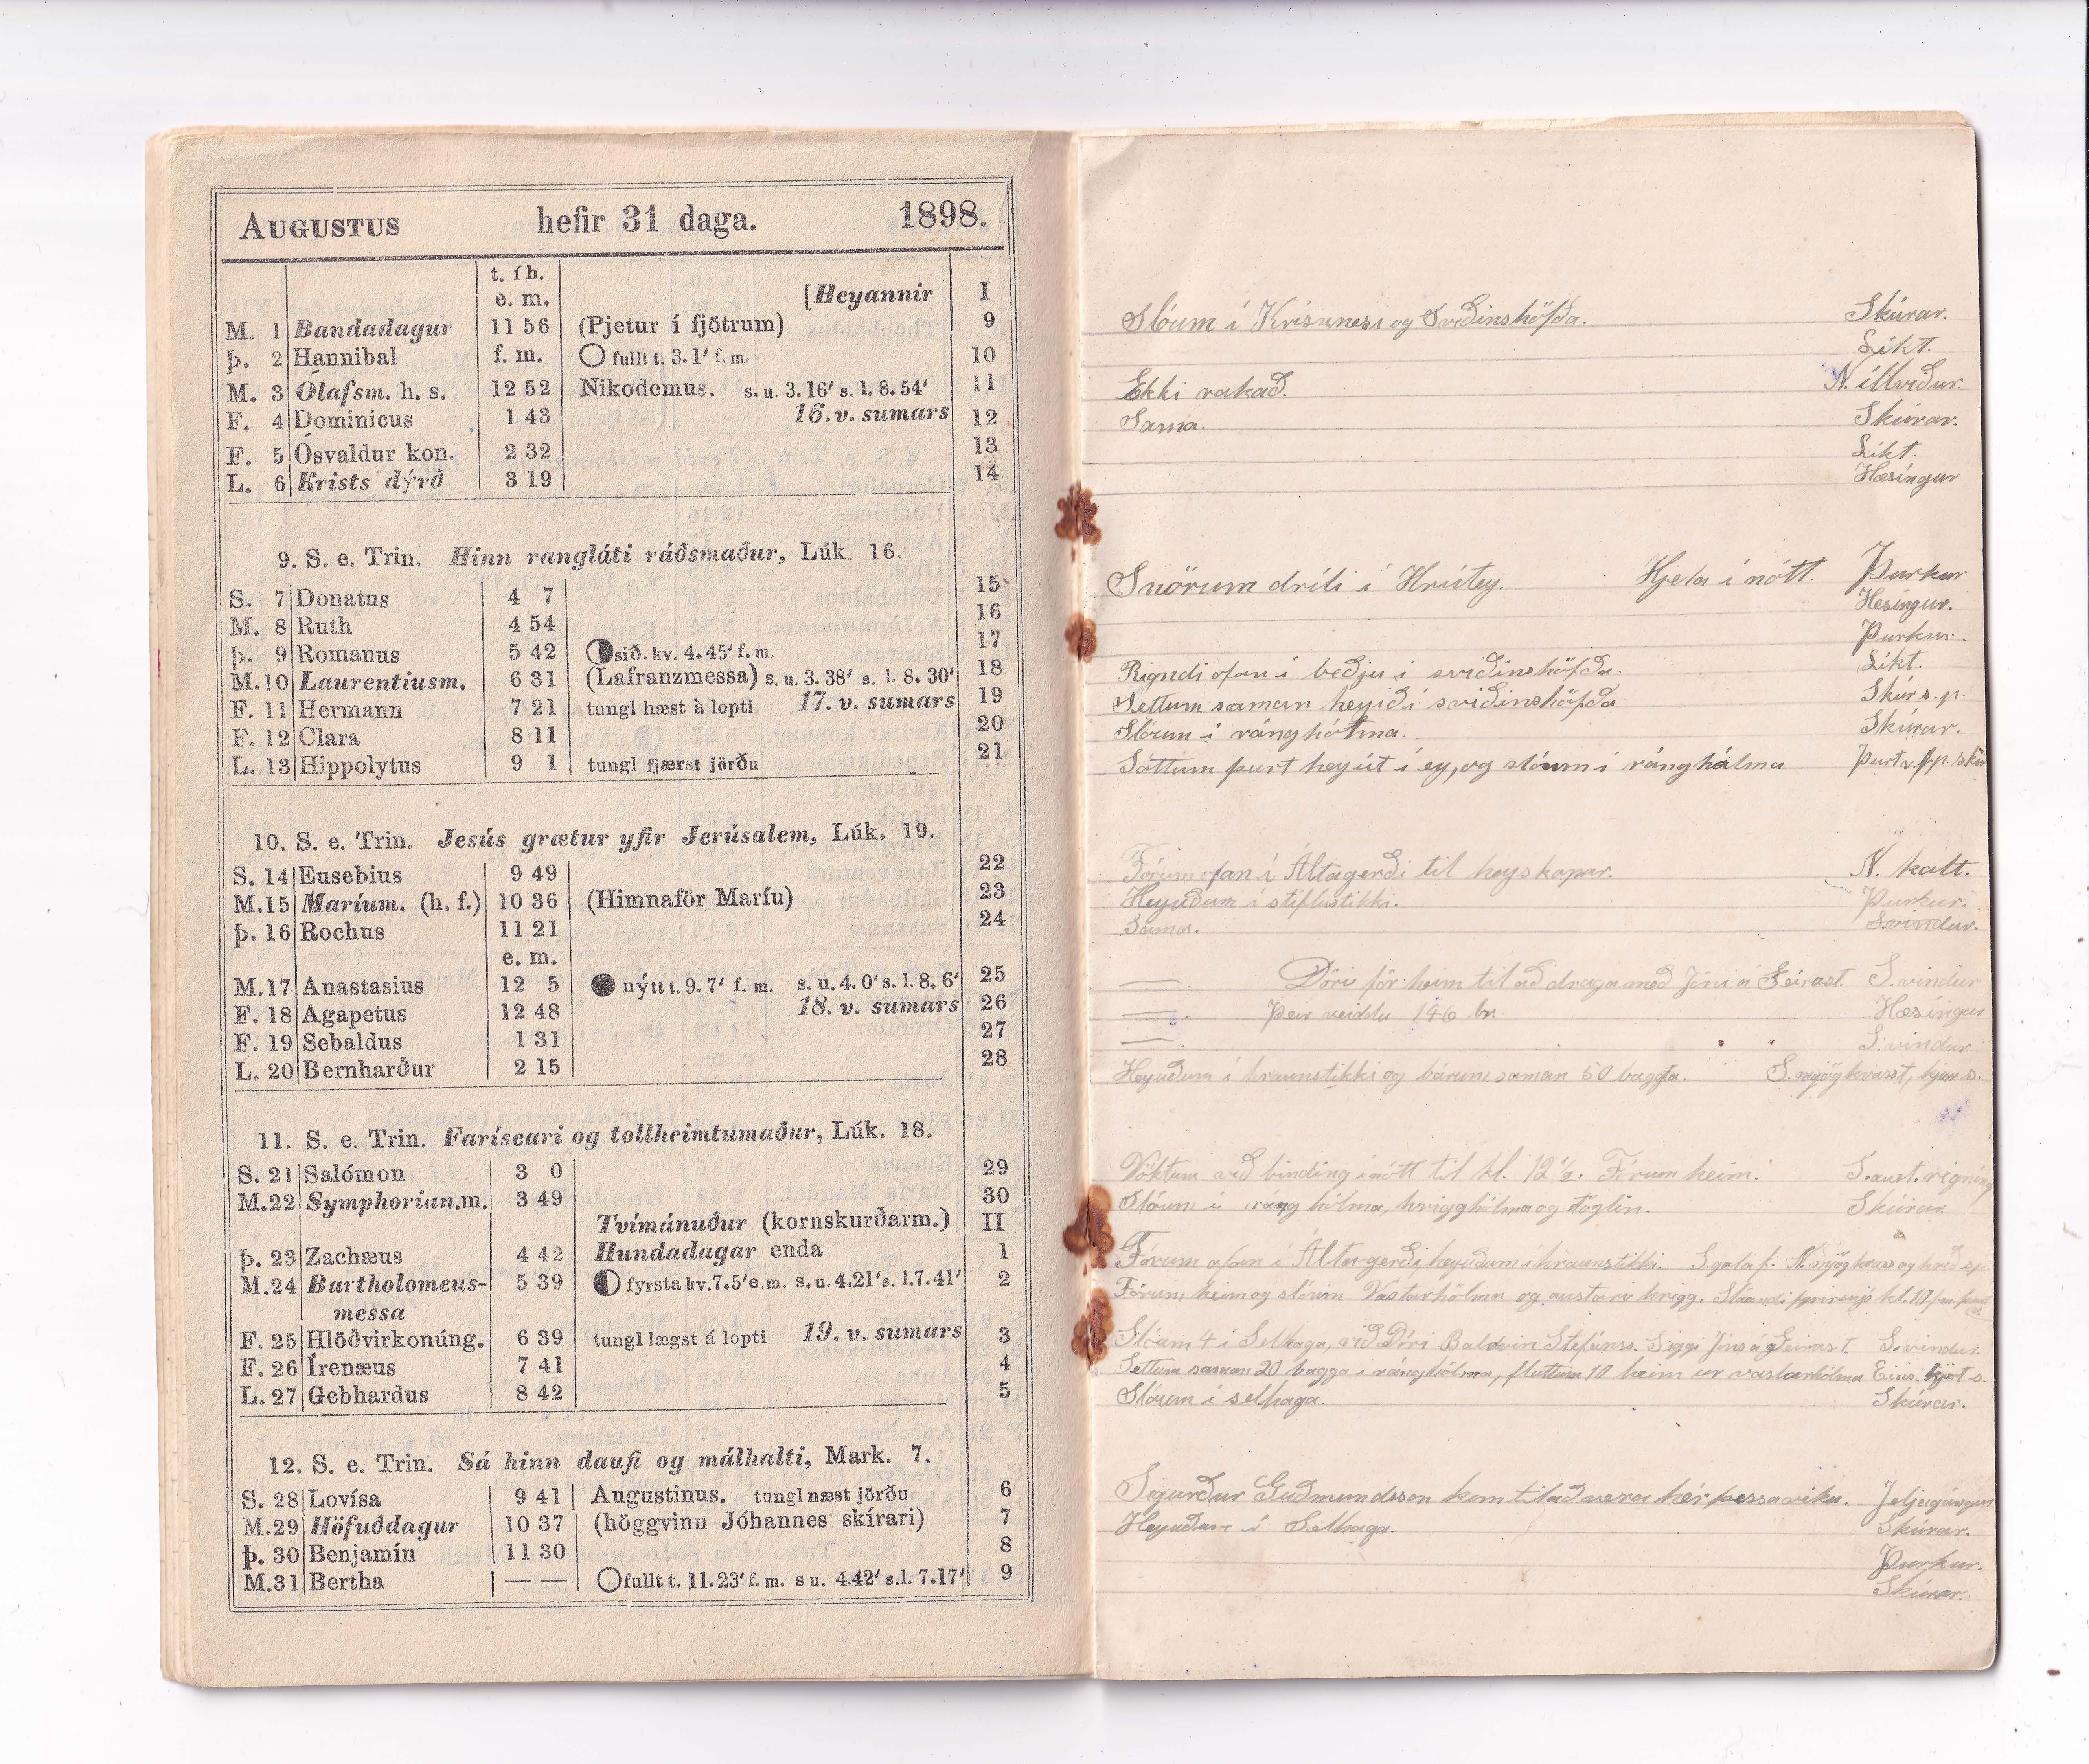 AUGUSTUS hefir 31 daga. 1898.
t. í h.
e. m. [Heyannir I
M. 1 Bandadagur 11 56 (Pjetur í fjötrum) 9
Þ. 2 Hannibal f. m. ○ fullt t. 3.1′ f. m. 10
M. 3 Ólafsm. h. s. 12 52 Nikodemus. s. u. 3.16′ s. l. 8.54′ 11
F. 4 Dominicus 1 43 16. v. sumars 12
F. 5 Ósvaldur kon. 2 32 13
L. 6 Krists dýrð 3 19 14
9. S. e. Trin. Hinn rangláti ráðsmaður, Lúk. 16.
S. 7 Donatus 4 7 15
M. 8 Ruth 4 54 16
Þ. 9 Romanus 5 42 síð. kv. 4.45′ f. m. 17
M. 10 Laurentiusm. 6 31 (Lafranzmessa) s. u. 3.38′ s. l. 8.30′ 18
F. 11 Hermann 7 21 tungl hæst à lopti 17. v. sumars 19
F. 12 Clara 8 11 20
L. 13 Hippolytus 9 1 tungl fjærst jörðu 21
10. S. e. Trin. Jesús grætur yfir Jerúsalem, Lúk. 19.
S. 14 Eusebius 9 49 22
M. 15 Maríum. (h. f.) 10 36 (Himnaför Maríu) 23
Þ. 16 Rochus 11 21 24
e. m.
M. 17 Anastasius 12 5 ● nýtt t. 9. 7′ f. m. s. u. 4. 0′ s. l. 8. 6′ 25
F. 18 Agapetus 12 48 18. v. sumars 26
F. 19 Sebaldus 1 31 27
L. 20 Bernharður 2 15 28
11. S. e. Trin. Faríseari og tollheimtumaður, Lúk. 18.
S. 21 Salómon 3 0 29
M. 22 Symphorian.m. 3 49 30
Tvímánuður (kornskurðarm.) II
Þ. 23 Zachæus 4 42 Hundadagar enda 1
M. 24 Bartholomeus- 5 39 fyrsta kv. 7.5′ e. m. s. u. 4.21′ s. l. 7.41′ 2
messa
F. 25 Hlöðvirkonúng. 6 39 tungl lægst á lopti 19. v. sumars 3
F. 26 Írenæus 7 41 4
L. 27 Gebhardus 8 42 5
12. S. e. Trin. Sá hinn daufi og málhalti, Mark. 7.
S. 28 Lovísa 9 41 Augustinus. tungl næst jörðu 6
M. 29 Höfuðdagur 10 37 (höggvinn Jóhannes skírari) 7
Þ. 30 Benjamín 11 30 8
M. 31 Bertha — — ○ fullt t. 11.23′ f. m. s u. 4.42′ s. l. 7.17′ 9
Slóum í Krísunesi og Sviðinshöfða. Skúrar.
Líkt.
Ekki rakað. N. íllviður.
Sama. Skúrar.
Líkt.
Hæsíngur
Snörum dríli í Hrútey. Hjela í nótt. Þurkur
Hesíngur.
Þurkur.
Rigndi ofan í beðju í sviðinshöfða. Líkt.
Settum saman heyið í sviðinshöfða Skúrs.p.
Slóum í ránghólma. Skúrar.
Sóttum þurt hey út í ey, og slóum í ránghólma
Fórum ofan í Áltagerði til heyskapar. N. kalt.
Heyuðum í stiflustikki. Þurkur.
Sama. S.vindur.
— Dóri fór heim til að draga með Jóni á Geirast. S.vindur
— Þeir veiddu 146 br. Hæsíngur
— S.vindur
Heyuðum í hraunstikki og bárum saman 50 bagga. S. mjög kvasst,
Vöktum við bindíng í nótt til kl. 12 ½. Fórum heim. S.aust. rigníng
Slóum í ráng hólma, hrigghólma og töglin. Skúrar
Fórum ofan í Áltagerði heyuðum í hraunstikki.
Fórum heim og slóum Vastarhólma og austari hrigg.
Slóum 4 í Selhaga, við Dóri Baldvin Stefánss. Siggi Jóns á Geirast. S.vindur.
Settum saman 20 bagga í ránghólma, fluttum 10 heim úr vastarhólma
Slóum í selhaga. Skúrar.
Sigurður Guðmundsson kom til að vera hér þessa viku. Jeljagángur
Heyuðum í Selhaga. Skúrar.
Þurkur.
Skúrar.